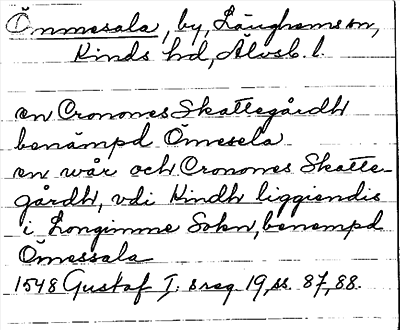 Ömmesala, by, Länghems sn,
Kinds hd, Älvsb. l.
en Cronones Skattegårdh
benämpd Ömesela
en wår och Cronones Skatte-
gårdh, vdi Kindh liggiendis
i Longimme Sokn, benempd
Ömessala
1548 Gustaf I. s reg 19, ss. 87, 88.